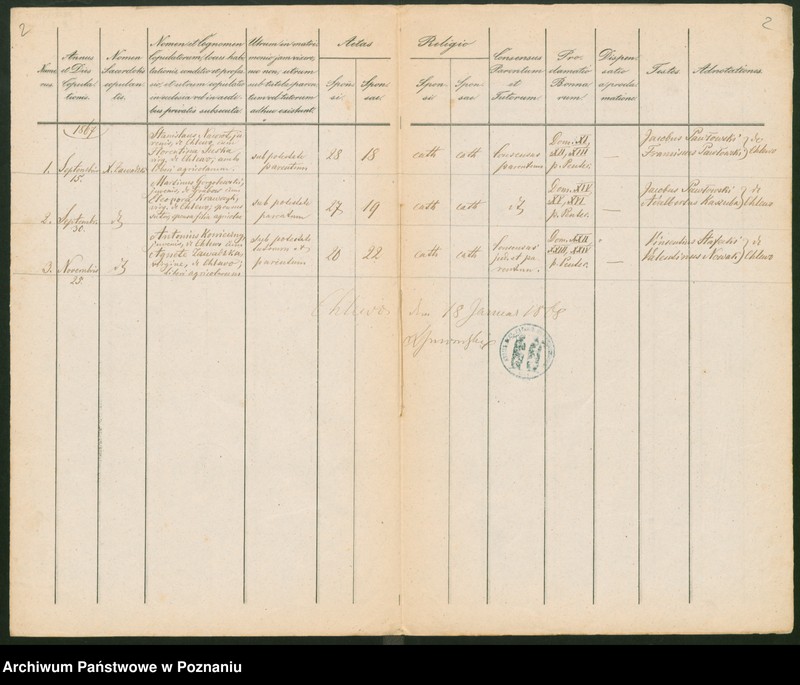 2
2
Nume-
rus.
Annus
et Dies
Copula-
tionis.
Nomen
Sacerdotis
copulan-
tis.
Nomen et Cognomen
Copulatorum, locus habi-
tationis, conditio et profes-
sio, et utrum copulatio
in ecclesia vel in aedi-
bus privatis subsecuta.
Utrum in matri-
monio jam vixere,
nec non, utrum
sub tutela paren-
tum vel tutorum
adhuc existunt.
Aetas
Spon-
si
Spon-
sae.
Religio
Spon-
si.
Spon-
sae.
Consensus
Parentum
et
Tutorum.
Pro-
clamatio
Banno-
rum.
Dispen-
satio
a procla-
matione.
Testes
Adnotationes.
1867
1. Septembris
15.
X. Zawadzki
Stanislaus Nawot, ju-
venis, de Chlewo, cum
Florentina
virg. de Chlewo; ambo
filii agricolarum.
sub potestate
parentum
28
18
cath
cath
Consensus
parentum
Dom. XI,
XII, XIII
p. Pentec.
—
Jacobus Pawłowski
Franciscus Pawłowski
de
Chlewo
2. Septembris
30.
Martinus
juvenis, de Grabow cum
Eleonora
virg. de Chlewo;
sub potestate
parentum
27
19
cath
cath
Dom. XIV,
XV, XVI.
p. Pentec.
—
Jacobus Pawłowski
Adalbertus Kaszuba
de
Chlewo
3. Novembris
25.
Antonius Konieczny,
juvenis, de Chlewo cum
Agnete Zawadzka,
virgine, de Chlewo;
filii agricolarum
sub potestate
tutorum et
parentum
20
22
cath
cath
Consensus
jud. et pa-
rentum.
Dom. XXII
XXIII, XXIV
p. Pentec.
—
Vincentius
Valentinus Nowak
de
Chlewo
Chlewo den 18 Januar 1868
Archiwum Państwowe w Poznaniu